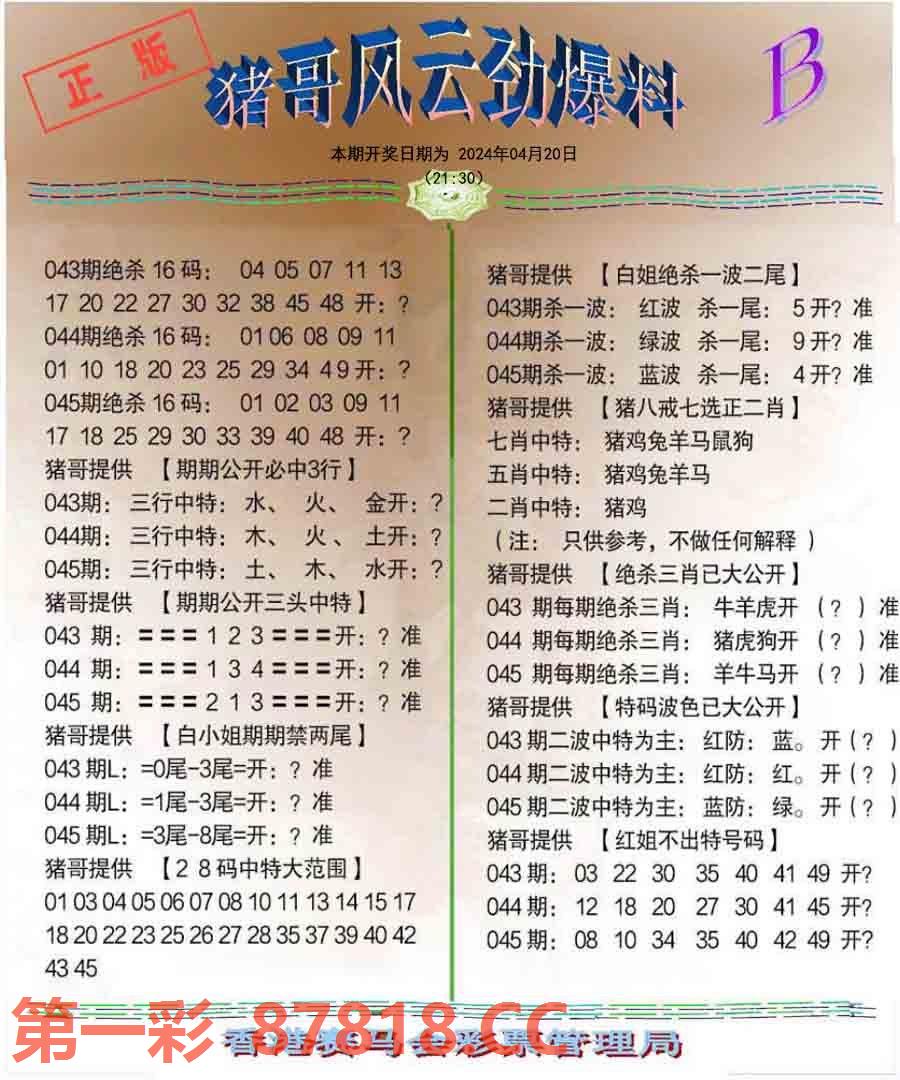 正版
猪哥风云劲爆料
B
本期开奖日期为 2024年04月20日
(21:30)
043期绝杀 16 码： 04 05 07 11 13
17 20 22 27 30 32 38 45 48 开：?
044期绝杀 16 码： 01 06 08 09 11
01 10 18 20 23 25 29 34 49 开：?
045期绝杀 16 码： 01 02 03 09 11
17 18 25 29 30 33 39 40 48 开：?
猪哥提供 【期期公开必中3行】
043期：三行中特：水、 火、 金开：?
044期：三行中特：木、 火、 土开：?
045期：三行中特：土、 木、 水开：?
猪哥提供 【期期公开三头中特】
043 期：〓〓〓 1 2 3 〓〓〓开：? 准
044 期：〓〓〓 1 3 4 〓〓〓开：? 准
045 期：〓〓〓 2 1 3 〓〓〓开：? 准
猪哥提供 【白小姐期期禁两尾】
043 期L：=0尾-3尾=开：? 准
044 期L：=1尾-3尾=开：? 准
045 期L：=3尾-8尾=开：? 准
猪哥提供 【2 8 码中特大范围】
01 03 04 05 06 07 08 10 11 13 14 15 17
18 20 22 23 25 26 27 28 35 37 39 40 42
43 45
猪哥提供 【白姐绝杀一波二尾】
043期杀一波： 红波 杀一尾： 5 开? 准
044期杀一波： 绿波 杀一尾： 9 开? 准
045期杀一波： 蓝波 杀一尾： 4 开? 准
猪哥提供 【猪八戒七选正二肖】
七肖中特： 猪鸡兔羊马鼠狗
五肖中特： 猪鸡兔羊马
二肖中特： 猪鸡
（注： 只供参考，不做任何解释 ）
猪哥提供 【绝杀三肖已大公开】
043 期每期绝杀三肖： 牛羊虎开 （？）准
044 期每期绝杀三肖： 猪虎狗开 （？）准
045 期每期绝杀三肖： 羊牛马开 （？）准
猪哥提供 【特码波色已大公开】
043 期二波中特为主： 红防： 蓝。 开（？）
044 期二波中特为主： 红防： 红。 开（？）
045 期二波中特为主： 蓝防： 绿。 开（？）
猪哥提供 【红姐不出特号码】
043 期： 03 22 30 35 40 41 49 开?
044 期： 12 18 20 27 30 41 45 开?
045 期： 08 10 34 35 40 42 49 开?
第一彩 87818.CC
香港赛马会彩票管理局